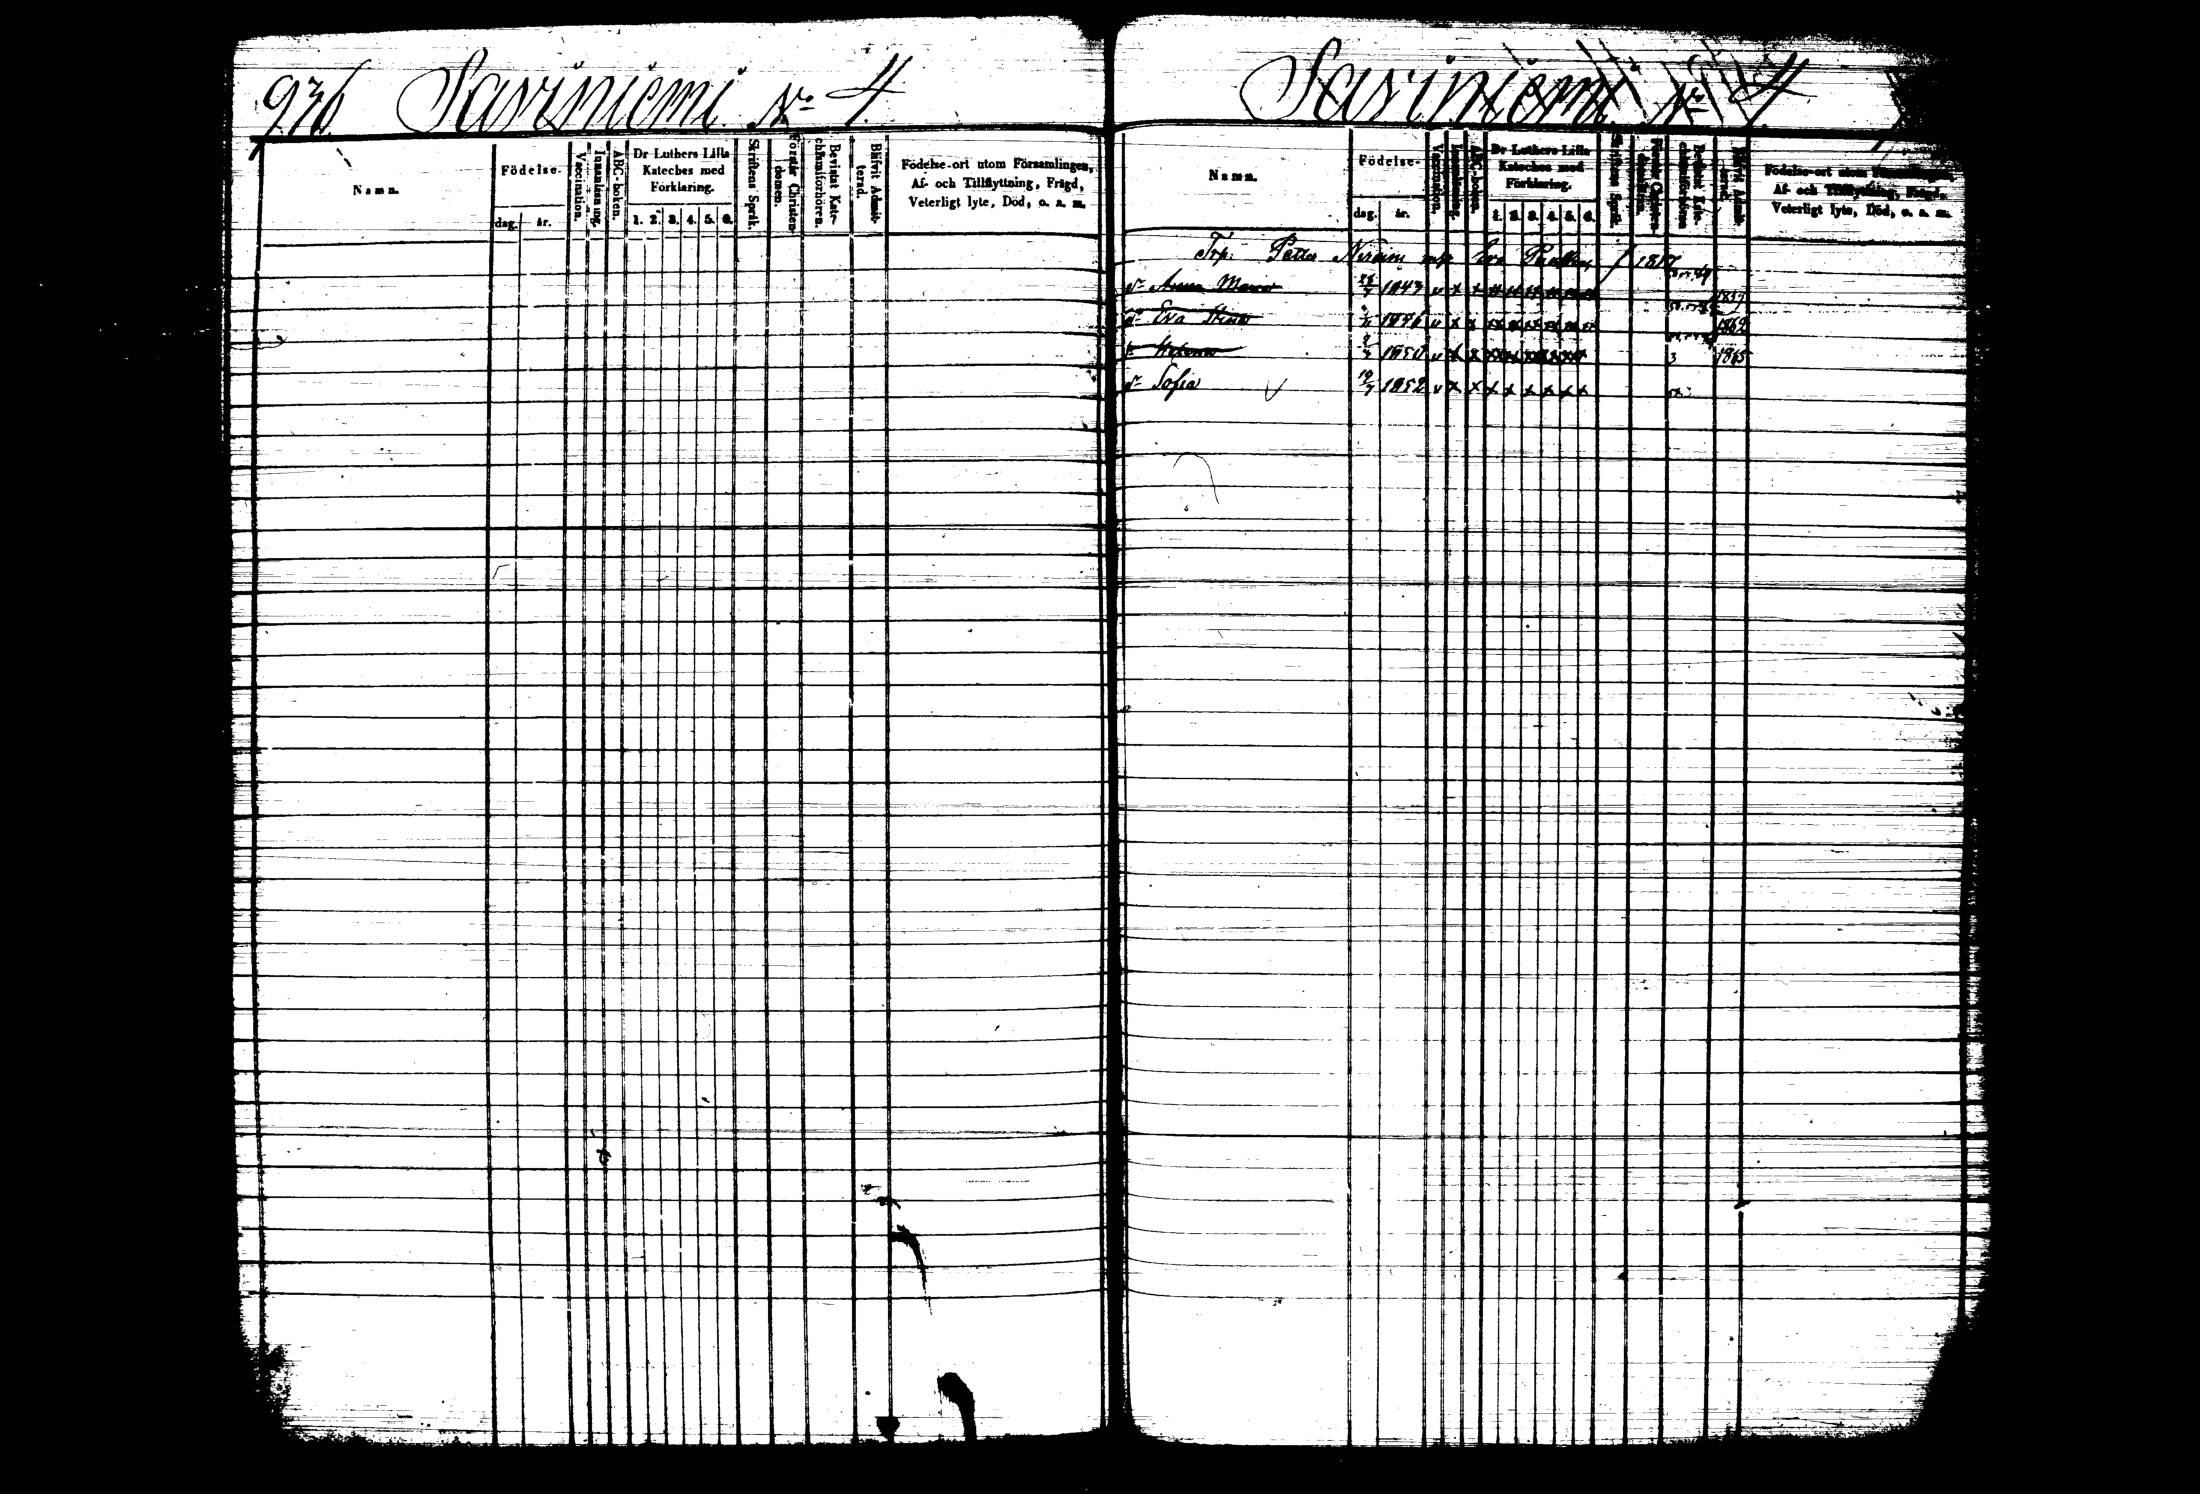 936 Saviniemi No 4
Namn.
Födelse-
dag. år.
Vaccination.
Innanläsning.
ABC-boken.
Dr Luthers Lilla Kateches med Förklaring.
1. 2. 3. 4. 5. 6.
Skriftens Språk.
Förstår Christendomen.
Bevistat Katechismiförhören.
Blifvit Admitterad.
Födelse-ort utom Församlingen,
Af- och Tillflyttning, Frägd,
Veterligt lyte, Död, o. s. m.
Saviniemi No 4
Namn.
Födelse-
dag. år.
Vaccination.
Innanläsning.
ABC-boken.
Dr Luthers Lilla
Kateches med
Förklaring.
1. 2. 3. 4. 5. 6.
Skriftens Språk.
Förstår Christendomen.
Bevistat Katechismiförhören
Blifvit Admitterad.
Födelse-ort utom Församlingen,
Af- och Tillflyttning, Frägd,
Veterligt lyte, Död, o. s. m.
Trp. Petter Eva 1817
dr Anna Maria 1843 v x x
dr Eva Stina 1846 v x x 1862
dr Helena 1850 v x x 3 1865
dr Sofia 19/7 1852 v x x x x x x x x